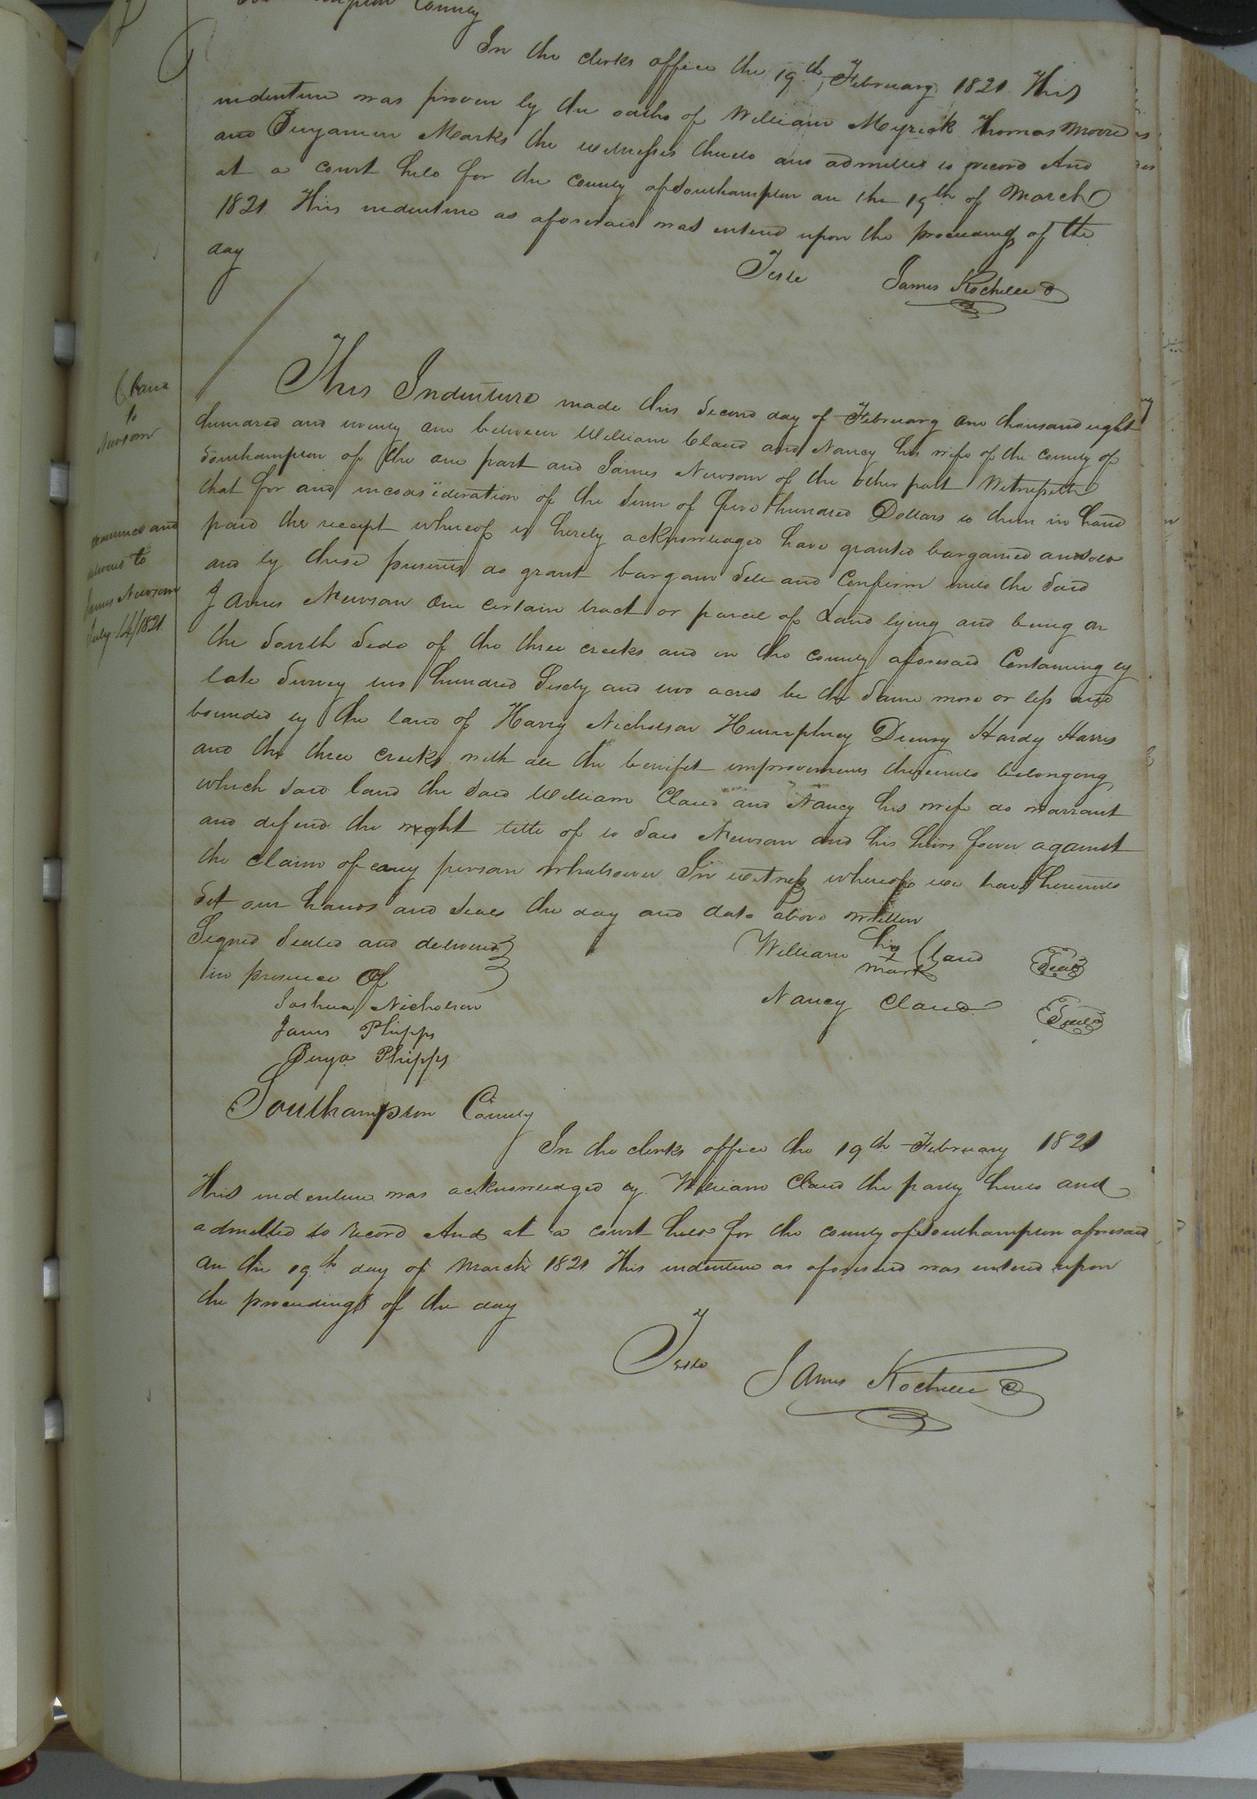 Southampton County
In the clerks office the 19th February 1821 This
indenture was proven by the oaths of William Myrick Thomas Moore
and Benjamin Marks the witnesses thereto and admitted to record And
at a court held for the county of Southampton on the 19th of March
1821 This indenture as aforesaid was entered upon the proceedings of the
day
Teste James Rochelle C
Claud
to
Newsom
This Indenture made this Second day of February one thousand eight
hundred and twenty one between William Claud and Nancy his wife of the county of
Southampton of the one part and James Newsom of the other part Witnesseth
that for and inconsideration of the Sum of five Hundred Dollars to them in hand
paid the receipt whereof is hereby acknowledged have granted bargained and sold
and by these presents do grant bargain Sell and Confirm unto the Said
James Newsom One certain tract or parcel of Land lying and being on
the South Side of the three creeks and in the county aforesaid Containing by
late Survey two hundred Sixty and two acres be the Same more or less and
bounded by the land of Harry Nicholson Humphrey Drewry Hardy Harris
and the three Creeks with all the benifit improvements thereunto belonging
which Said land the Said William Claud and Nancy his wife do warrant
and defend the right title of to Said Newsom and his heirs forever against
the claim of any person whatsoever In witness whereof we have hereunto
Set our hands and Seals the day and date above written
examined and
delivered to
James Newsom
July 14/1821
Signed Sealed and delivered
in presence of
William his mark Claud Seal
Nancy Claud Seal
Joshua Nicholson
James Phipps
Benja Phipps
Southampton County
In the clerks office the 19th February 1821
This indenture was acknowledged by William Claud the party hereto and
admitted to record And at a court held for the county of Southampton aforesaid
on the 19th day of March 1821 This indenture as aforesaid was entered upon
the proceedings of the day
Teste James Rochelle C